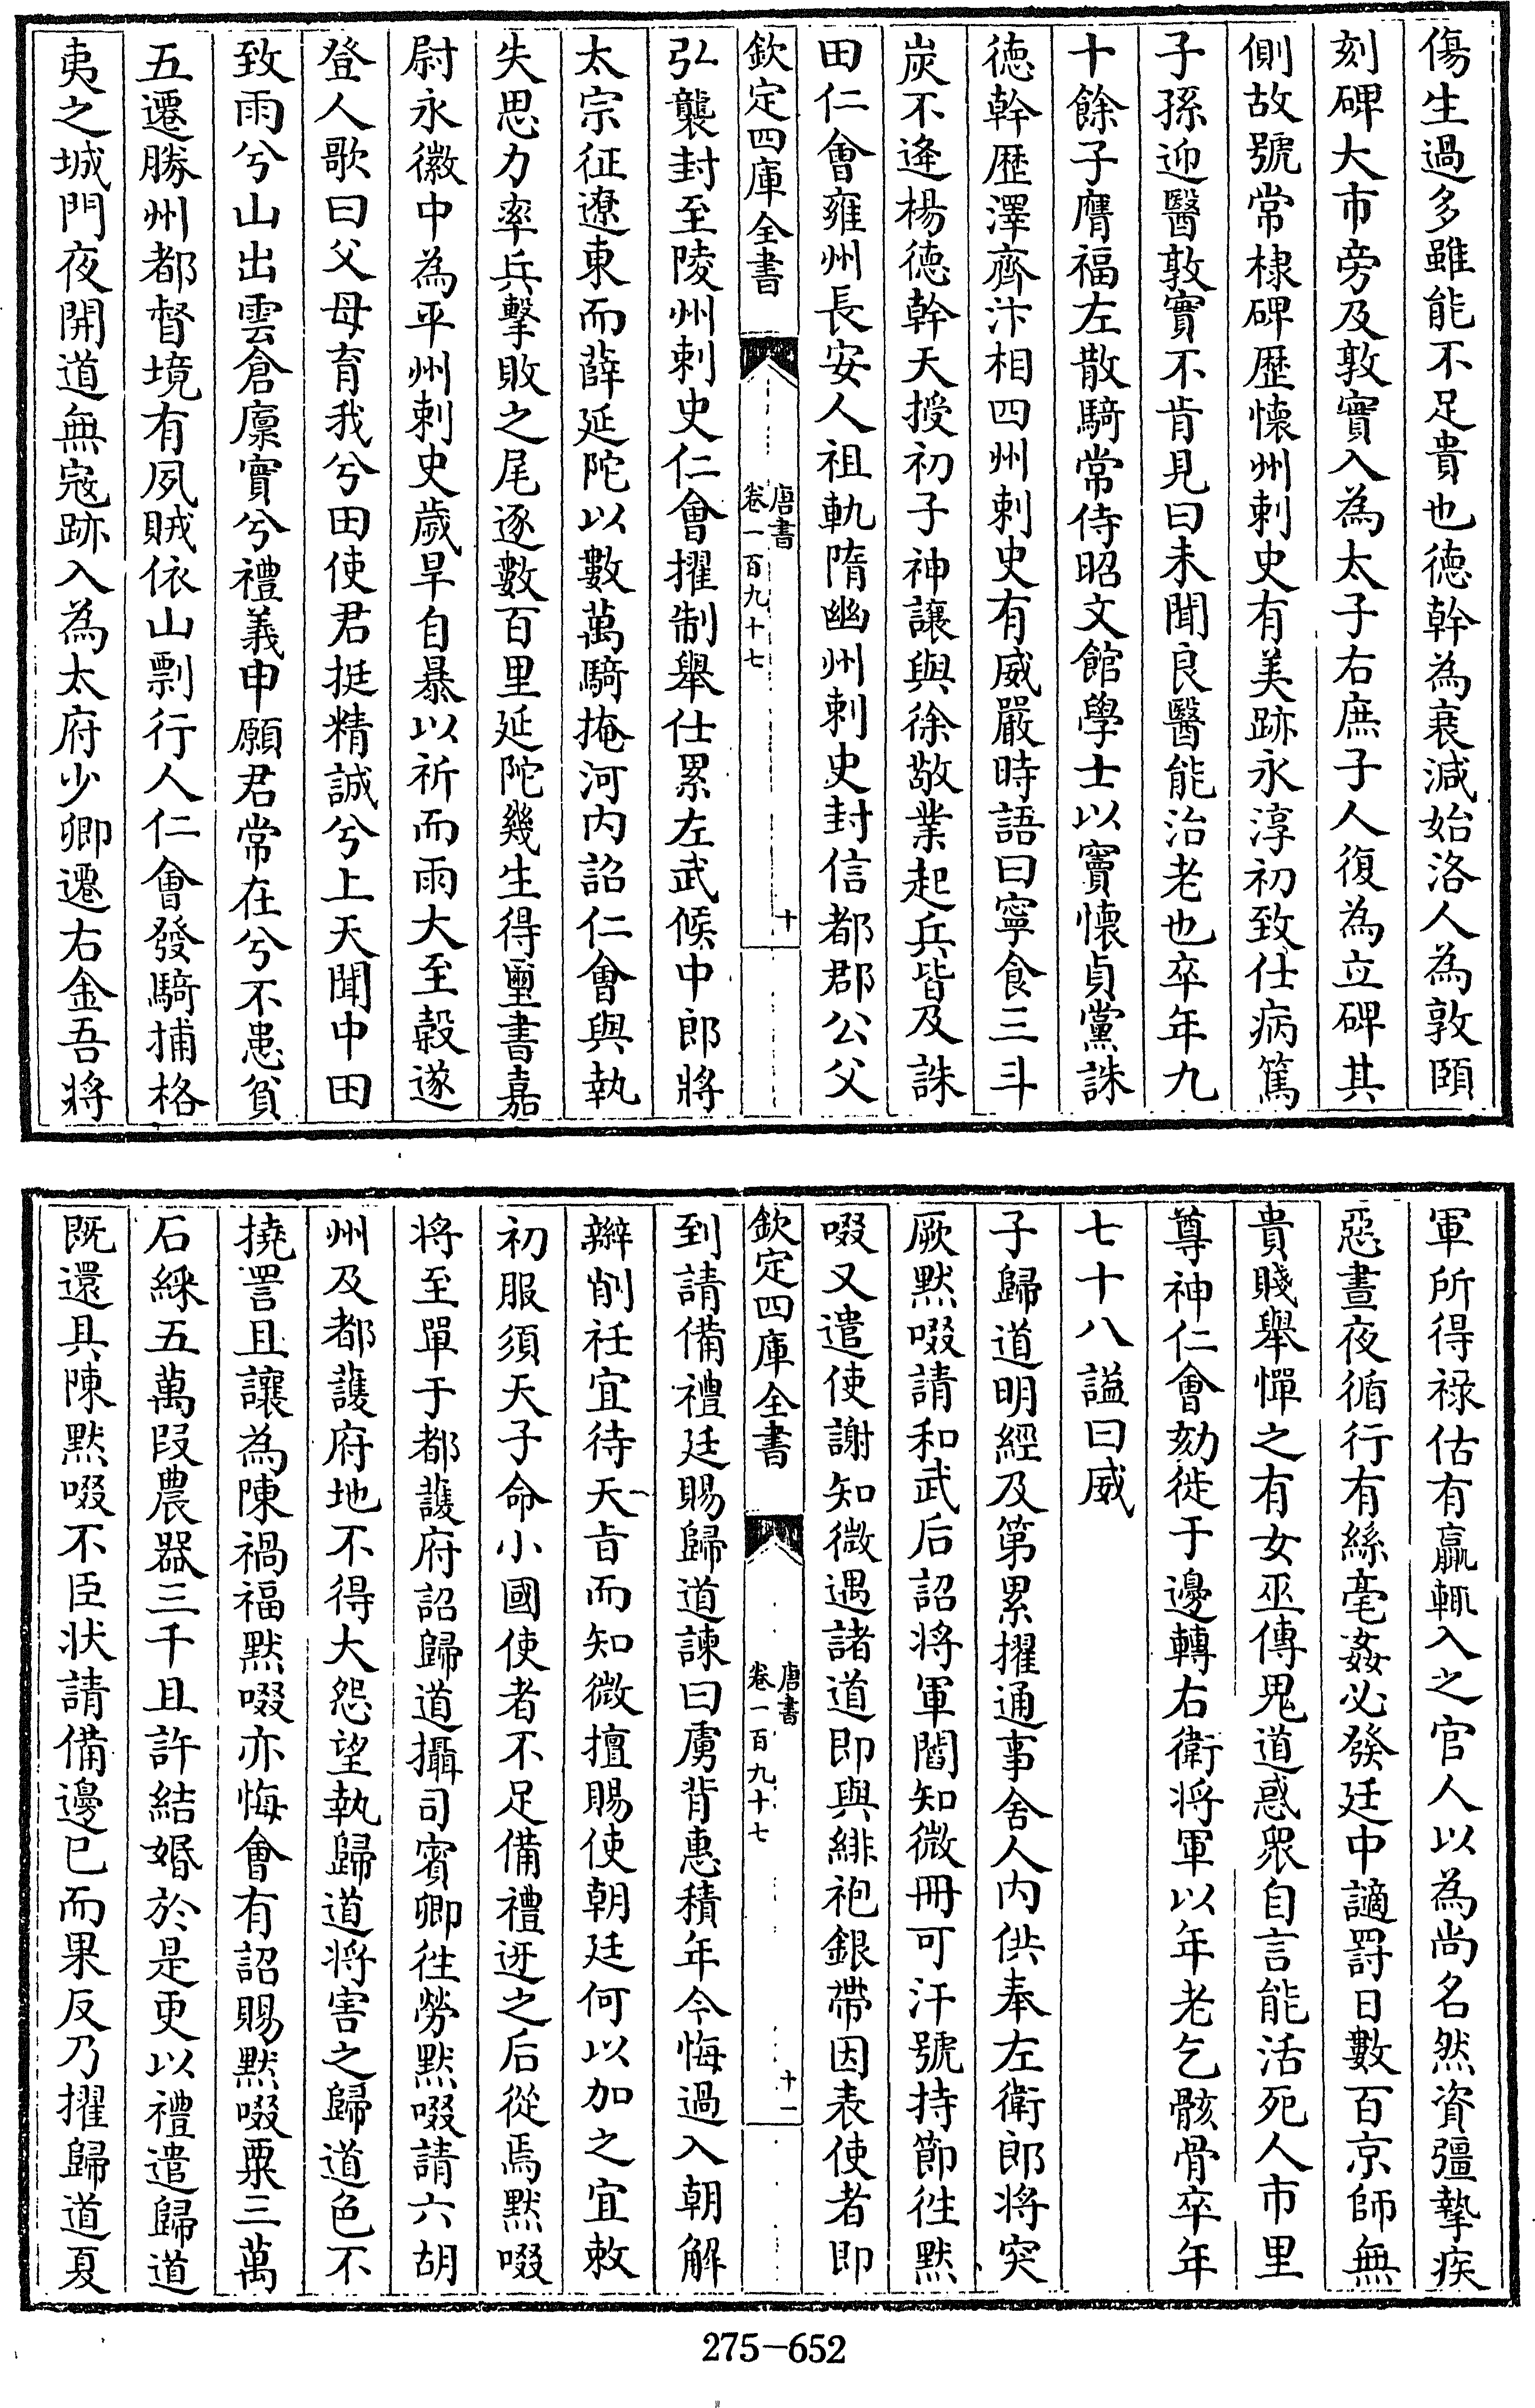 傷生過多雖能不足貴也德幹為衰減始洛人為敦頤
刻碑大市旁及敦實入為太子右庶子人復為立碑其
側故號常棣碑歷懷州刺史有美跡永淳初致仕病篤
子孫迎醫敦實不肯見曰未聞良醫能治老也卒年九
十餘子膺福左散騎常侍昭文館學士以竇懷貞黨誅
德幹歷澤齊汴相四州刺史有威嚴時語曰寧食三斗
炭不逢楊德幹天授初子神讓與徐敬業起兵皆及誅
田仁會雍州長安人祖軌隋幽州刺史封信都郡公父
欽定四庫全書
唐書
卷一百九十七
十
弘襲封至陵州刺史仁會擢制舉仕累左武候中郎將
太宗征遼東而薛延陀以數萬騎掩河內詔仁會與執
失思力率兵擊敗之尾逐數百里延陀幾生得璽書嘉
尉永徽中為平州刺史歲旱自暴以祈而雨大至穀遂
登人歌曰父母育我兮田使君挺精誠兮上天聞中田
致雨兮山出雲倉廩實兮禮義申願君常在兮不患貧
五遷勝州都督境有夙賊依山剽行人仁會發騎捕格
夷之城門夜開道無寇跡入為太府少卿遷右金吾將
軍所得祿估有贏輒入之官人以為尚名然資彊摯疾
惡晝夜循行有絲毫姦必發廷中讁罸日數百京師無
貴賤舉憚之有女巫傳鬼道惑衆自言能活死人市里
尊神仁會劾徙于邊轉右衛將軍以年老乞骸骨卒年
七十八諡曰威
子歸道明經及第累擢通事舍人內供奉左衛郎將突
厥默啜請和武后詔將軍閻知微冊可汗號持節徃默
啜又遣使謝知微遇諸道即與緋袍銀帶因表使者即
欽定四庫全書
唐書
卷一百九十七
十一
到請備禮廷賜歸道諫曰虜背惠積年今悔過入朝解
辮削衽宜待天旨而知微擅賜使朝廷何以加之宜敕
初服須天子命小國使者不足備禮迓之后從焉默啜
將至單于都護府詔歸道攝司賓卿徃勞默啜請六胡
州及都護府地不得大怨望執歸道將害之歸道色不
撓詈且讓為陳禍福默啜亦悔會有詔賜默啜粟三萬
石綵五萬段農器三千且許結婚於是更以禮遣歸道
既還具陳默啜不臣狀請備邊已而果反乃擢歸道夏
275-652